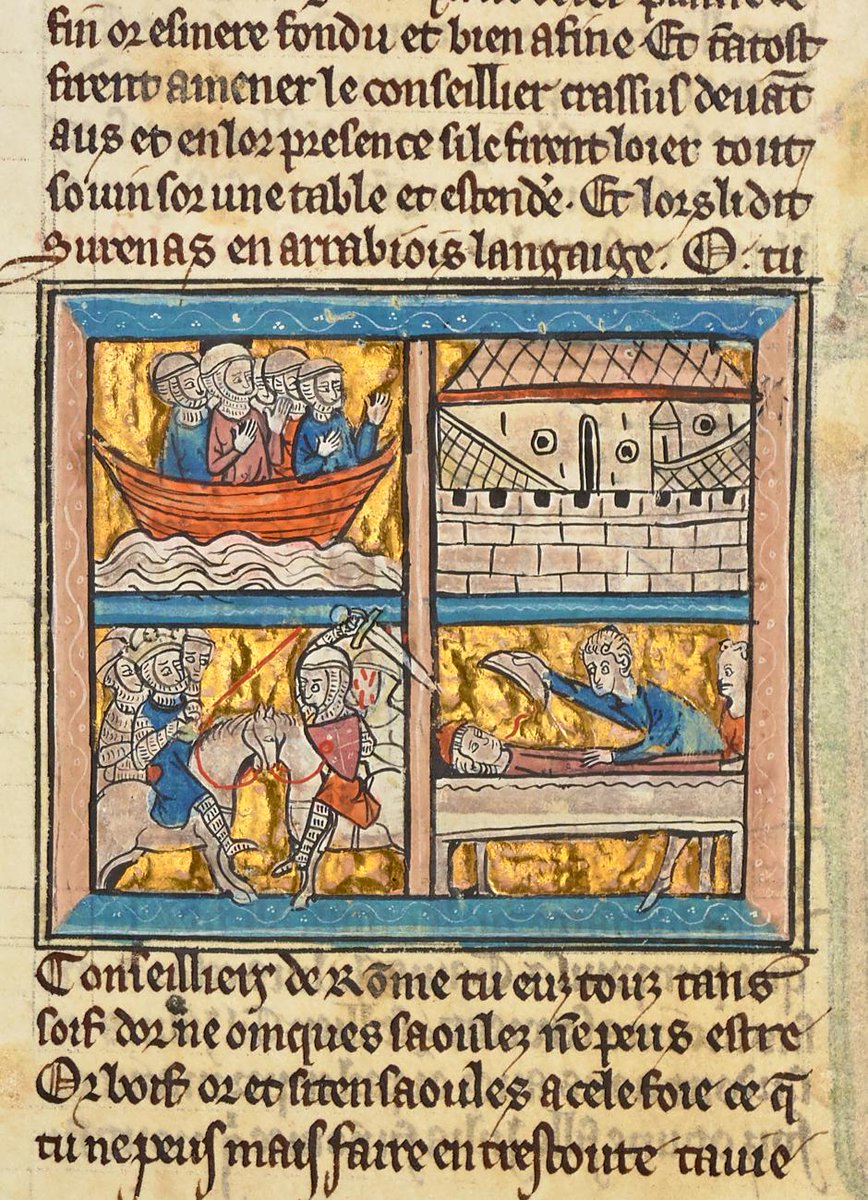 fin or esmere fondu et bien afine. Et tātost
firent amener le conseillier crassus deuāt
aus et en lor presence si le firent loier tout
souuin sor une table et estendre. Et lors li dit
Surenas en arrabiois langaige. O. tu
Conseilliers de Rōme tu euz touz tans
soif dor ne oincques saoulez nē peus estre
Or boif or et si ten saoules a cele foie ce q̄
tu ne peus mais faire en trestoute ta uie